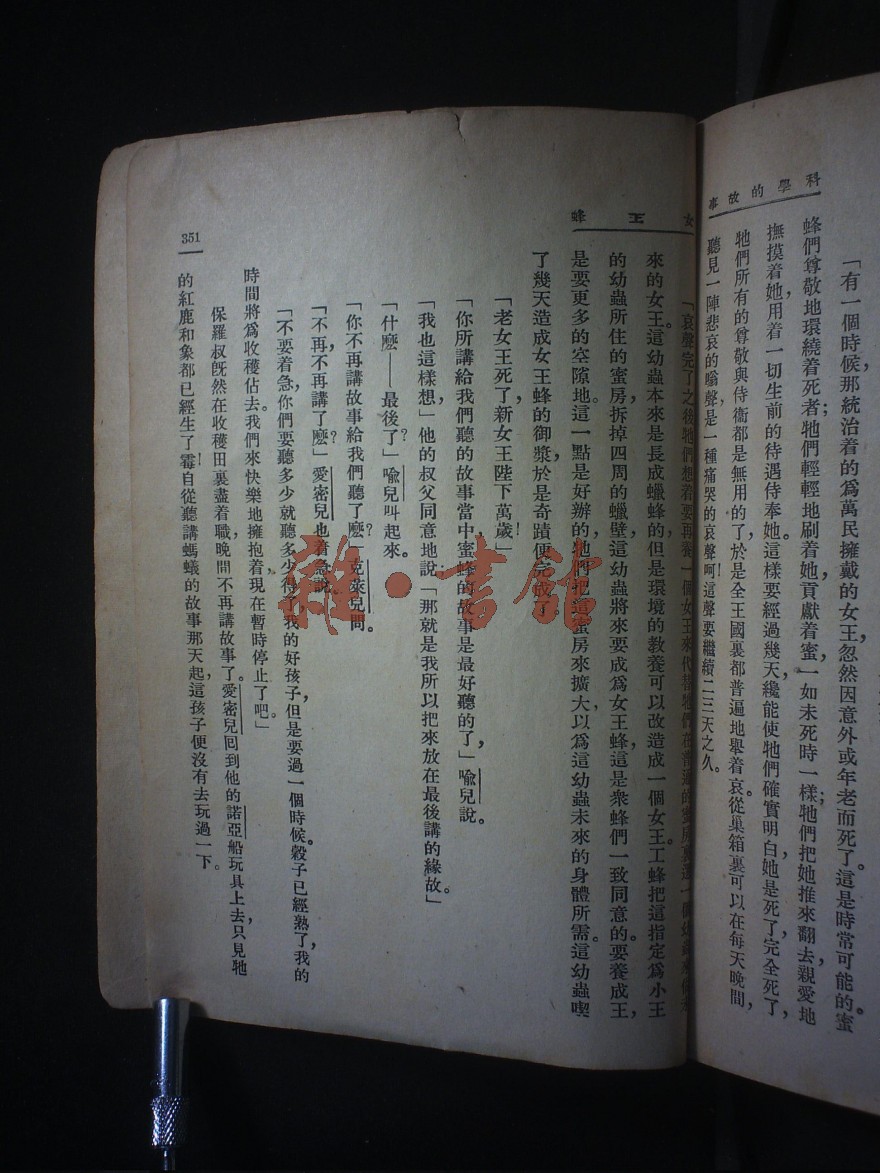 科學的故事
「有一個時候，那統治着的爲萬民擁戴的女王，忽然因意外或年老而死了。這是時常可能的。蜜
蜂們尊敬地環繞着死者；牠們輕輕地刷着她，貢獻着蜜，一如未死時一樣；牠們把她推來翻去，親愛地
撫摸着她，用着一切生前的待遇侍奉她。這樣要經過幾天，纔能使牠們確實明白她是死了，完全死了，
牠們所有的尊敬與侍衞都是無用的了。於是全王國裏都普遍地舉着哀。從巢箱裏可以在每天晚間，
聽見一陣悲哀的嗡聲，是一種痛哭的哀聲呵！這聲要繼續二三天之久。
女王蜂
「哀聲完了之後，牠們想着要再養一個女王來代替。牠們在普通的蜜房裏選一個幼蟲
來的女王。這幼蟲本來是長成蠟蜂的，但是環境的教養可以改造成一個女王。工蜂把這指定爲小王
的幼蟲所住的蜜房，拆掉四周的蠟壁，這幼蟲將來要成爲女王蜂，這是衆蜂們一致同意的。要養成王，
是要更多的空隙地。這一點是好辦的，牠們把這蜜房來擴大，以爲這幼蟲未來的身體所需。這幼蟲喫
了幾天造成女王蜂的御漿，於是奇蹟便完成了。
「老女王死了，新女王陛下萬歲！」
「你所講給我們聽的故事當中，蜜蜂的故事是最好聽的了，」喩兒說。
「我也這樣想，」他的叔父同意地說；「那就是我所以把來放在最後講的緣故。」
「什麼——最後了？」喩兒叫起來。
「你不再講故事給我們聽了麼？」克萊兒問。
「不再，不再講了麼？」愛密兒也着急說。
「不要着急，你們要聽多少就聽多少得了，我的好孩子，但是要過一個時候。穀子已經熟了，我的
時間將爲收穫佔去。我們來快樂地擁抱着，現在暫時停止了吧。」
保羅叔旣然在收穫田裏盡着職，晚間不再講故事了。愛密兒囘到他的諾亞船玩具上去，只見牠
的紅鹿和象都已經生了霉！自從聽講螞蟻的故事那天起，這孩子便沒有去玩過一下。
351
雜·書館